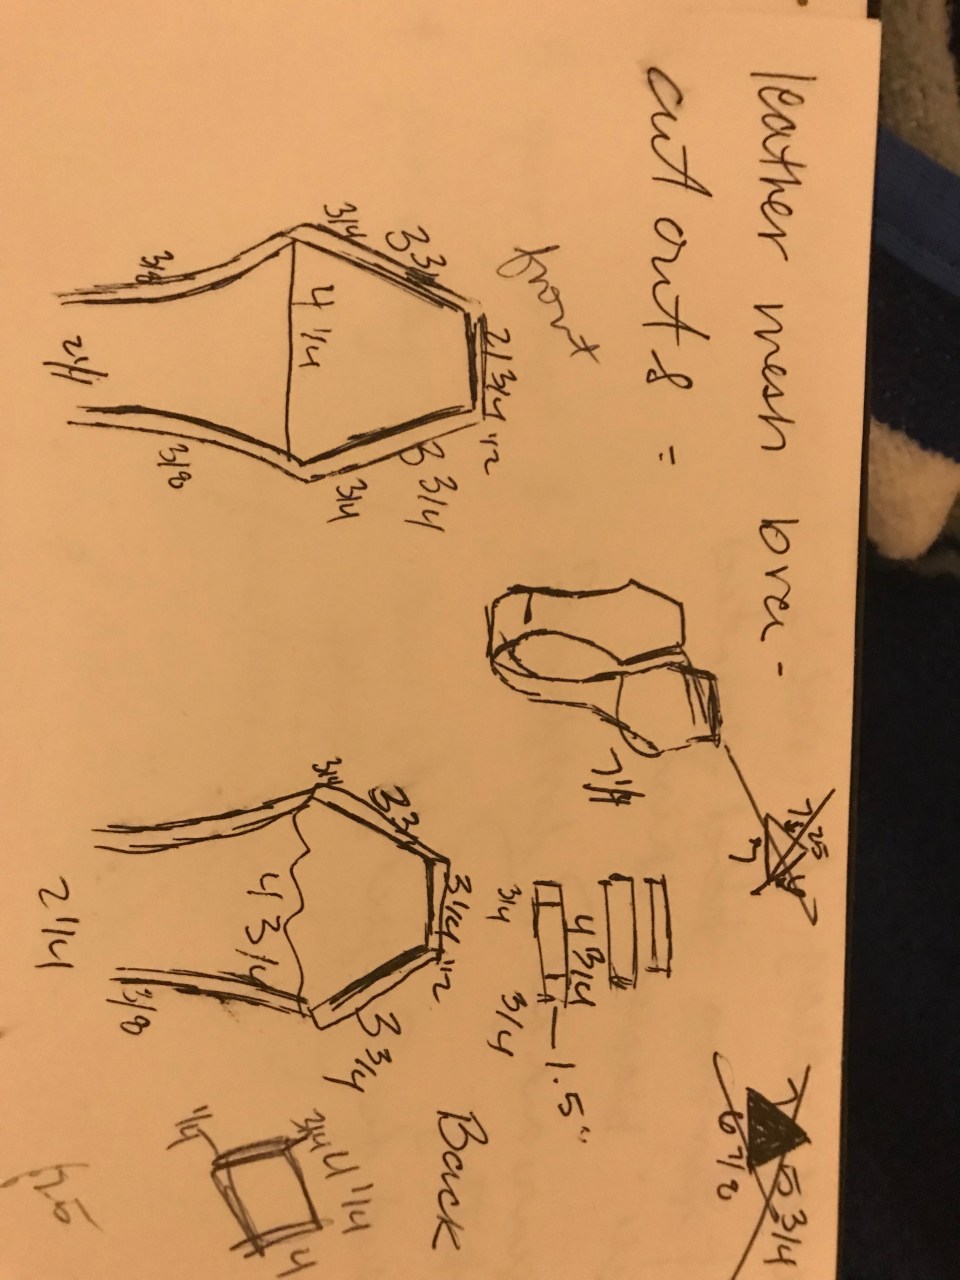 leather mesh bra -
cut outs =
front
2 3/4
1/2
3 3/4
3 3/4
3/4
3/4
4 1/4
3/8
3/8
2 1/4
7 1/4
7.25
7
3/4
4 3/4
3/4
1.5"
5 3/4
6 7/8
Back
3 1/4
1/2
3 3/4
3 3/4
3/4
4 3/4
3/8
2 1/4
3/4
4 1/4
1/4
4